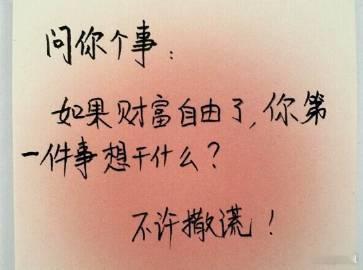 问你个事：
如果财富自由了，你第
一件事想干什么？
不许撒谎！